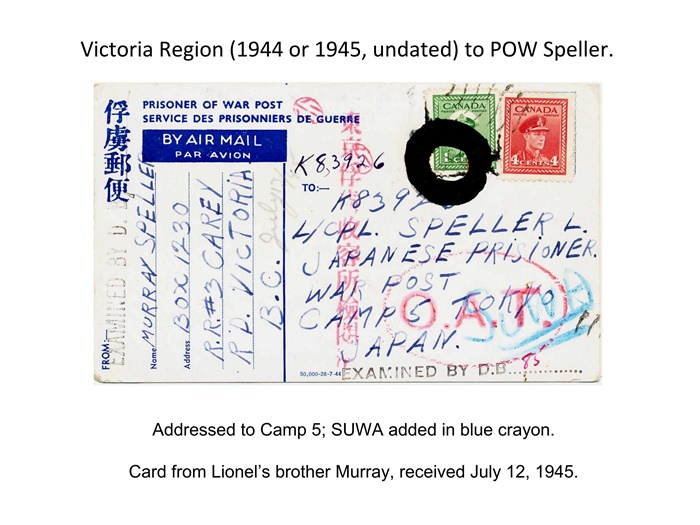 Victoria Region (1944 or 1945, undated) to POW Speller.
俘虜郵便
PRISONER OF WAR POST
SERVICE DES PRISONNIERS DE GUERRE
BY AIR MAIL
PAR AVION
FROM:—
Name MURRAY SPELLE
Address BOX 1230
R.R#3 CAREY
RD. VICTORIA
B.C.
EXAMINED BY D.
CANADA
CANADA
4 CENTS 4
K83926
TO:—
K8392
L/CPL. SPELLER L.
JAPANESE PRISIONER.
WAR POST
CAMP 5 TOKYO
JAPAN.
O.A.T.
SUWA
50,000-28-7-44
EXAMINED BY D.B. 85
Addressed to Camp 5; SUWA added in blue crayon.
Card from Lionel’s brother Murray, received July 12, 1945.